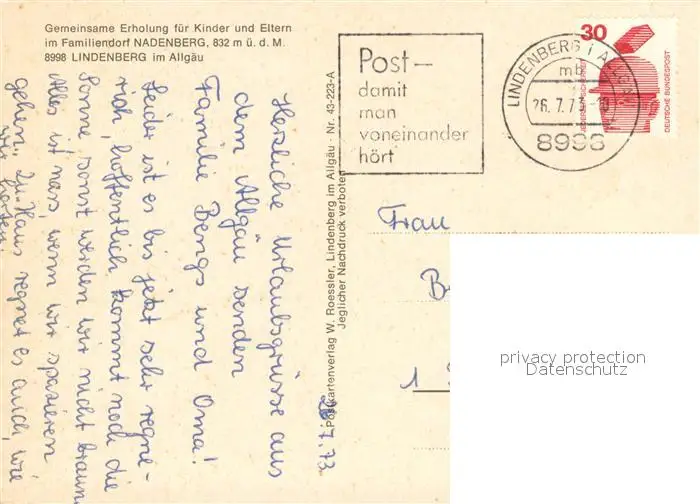 Gemeinsame Erholung für Kinder und Eltern
im Familiendorf NADENBERG, 832 m ü. d. M.
8998 LINDENBERG im Allgäu
Post-
damit
man
voneinander
hört
LINDENBERG i ALLGÄU
mb
26.7.73-10
8998
30
JEDERZEIT SICHERHEIT
DEUTSCHE BUNDESPOST
Postkartenverlag W. Roessler, Lindenberg im Allgäu · Nr. 43-223-A
Jeglicher Nachdruck verboten
7.73
Herzliche Urlaubsgrüsse aus
dem Allgäu senden
Familie Bengs und Oma!
Leider ist es bis jetzt sehr regne-
rich, hoffentlich kommt noch die
Sonne, sonst werden wir nicht braun
Alles ist nass, wenn wir spazieren
gehen. Zu Haus regnet es auch, wie
wir hörten!
Frau
B
1
privacy protection
Datenschutz